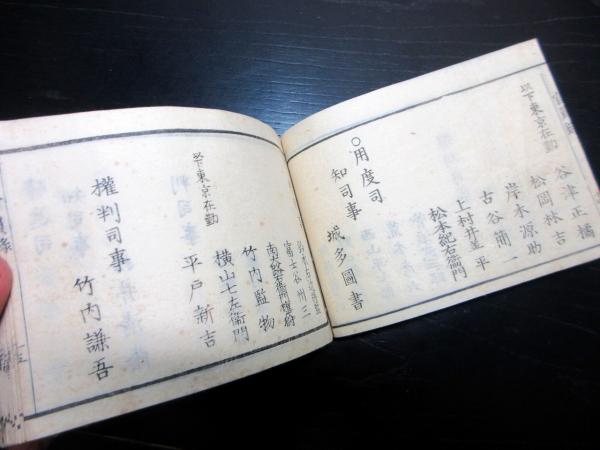 以下東京在勤
谷津正橘
松岡林吉
岸本源助
古谷簡一
上村井善平
松本紀右衛門
○用度司
知司事 城多圖書
竹内監物
横山七左衛門
以下東京在勤
平戸新吉
權判司事 竹内謙吾